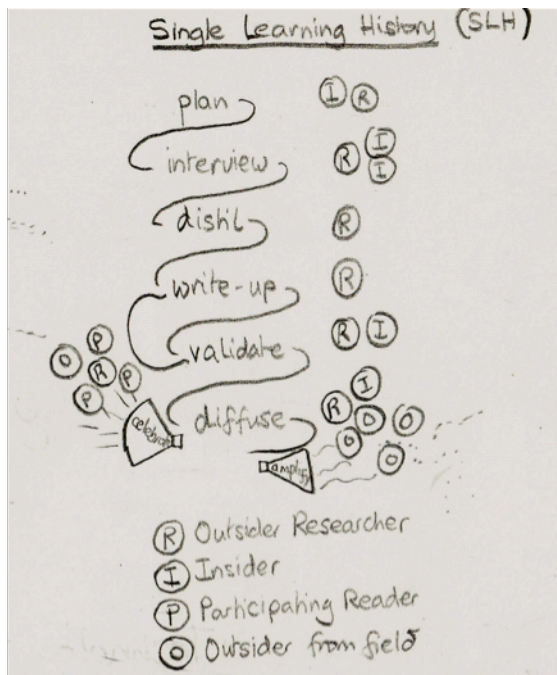 Single Learning History (SLH)
plan I R
interview R I I
distil R
write-up R
validate R I
O P R P P
celebrate
diffuse R I O O O O
amplify
R Outsider Researcher
I Insider
P Participating Reader
O Outsider from field